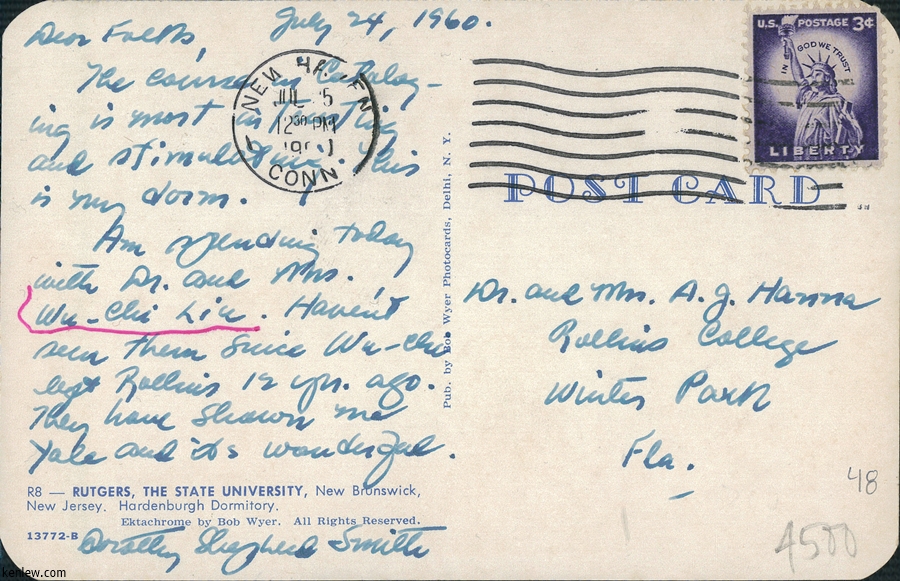 July 24, 1960.
Dear Folks,
The course in Catalog-
ing is most interesting
and stimulating. This
is my dorm.
Am spending today
with Dr. and Mrs.
Wu-Chi Liu. Haven't
seen them since Wu-chi
left Rollins 12 yrs. ago.
They have shown me
Yale and it's wonderful.
R8 — RUTGERS, THE STATE UNIVERSITY, New Brunswick,
New Jersey. Hardenburgh Dormitory.
Ektachrome by Bob Wyer. All Rights Reserved.
13772-B
Dorothy Shepherd Smith
Pub. by Bob Wyer Photocards, Delhi, N. Y.
NEW HAVEN
JUL 25
12 30 PM
CONN
U.S. POSTAGE 3¢
IN GOD WE TRUST
LIBERTY
POST CARD
Dr. and Mrs. A. J. Hanna
Rollins College
Winter Park
Fla.
48
4500
kenlew.com